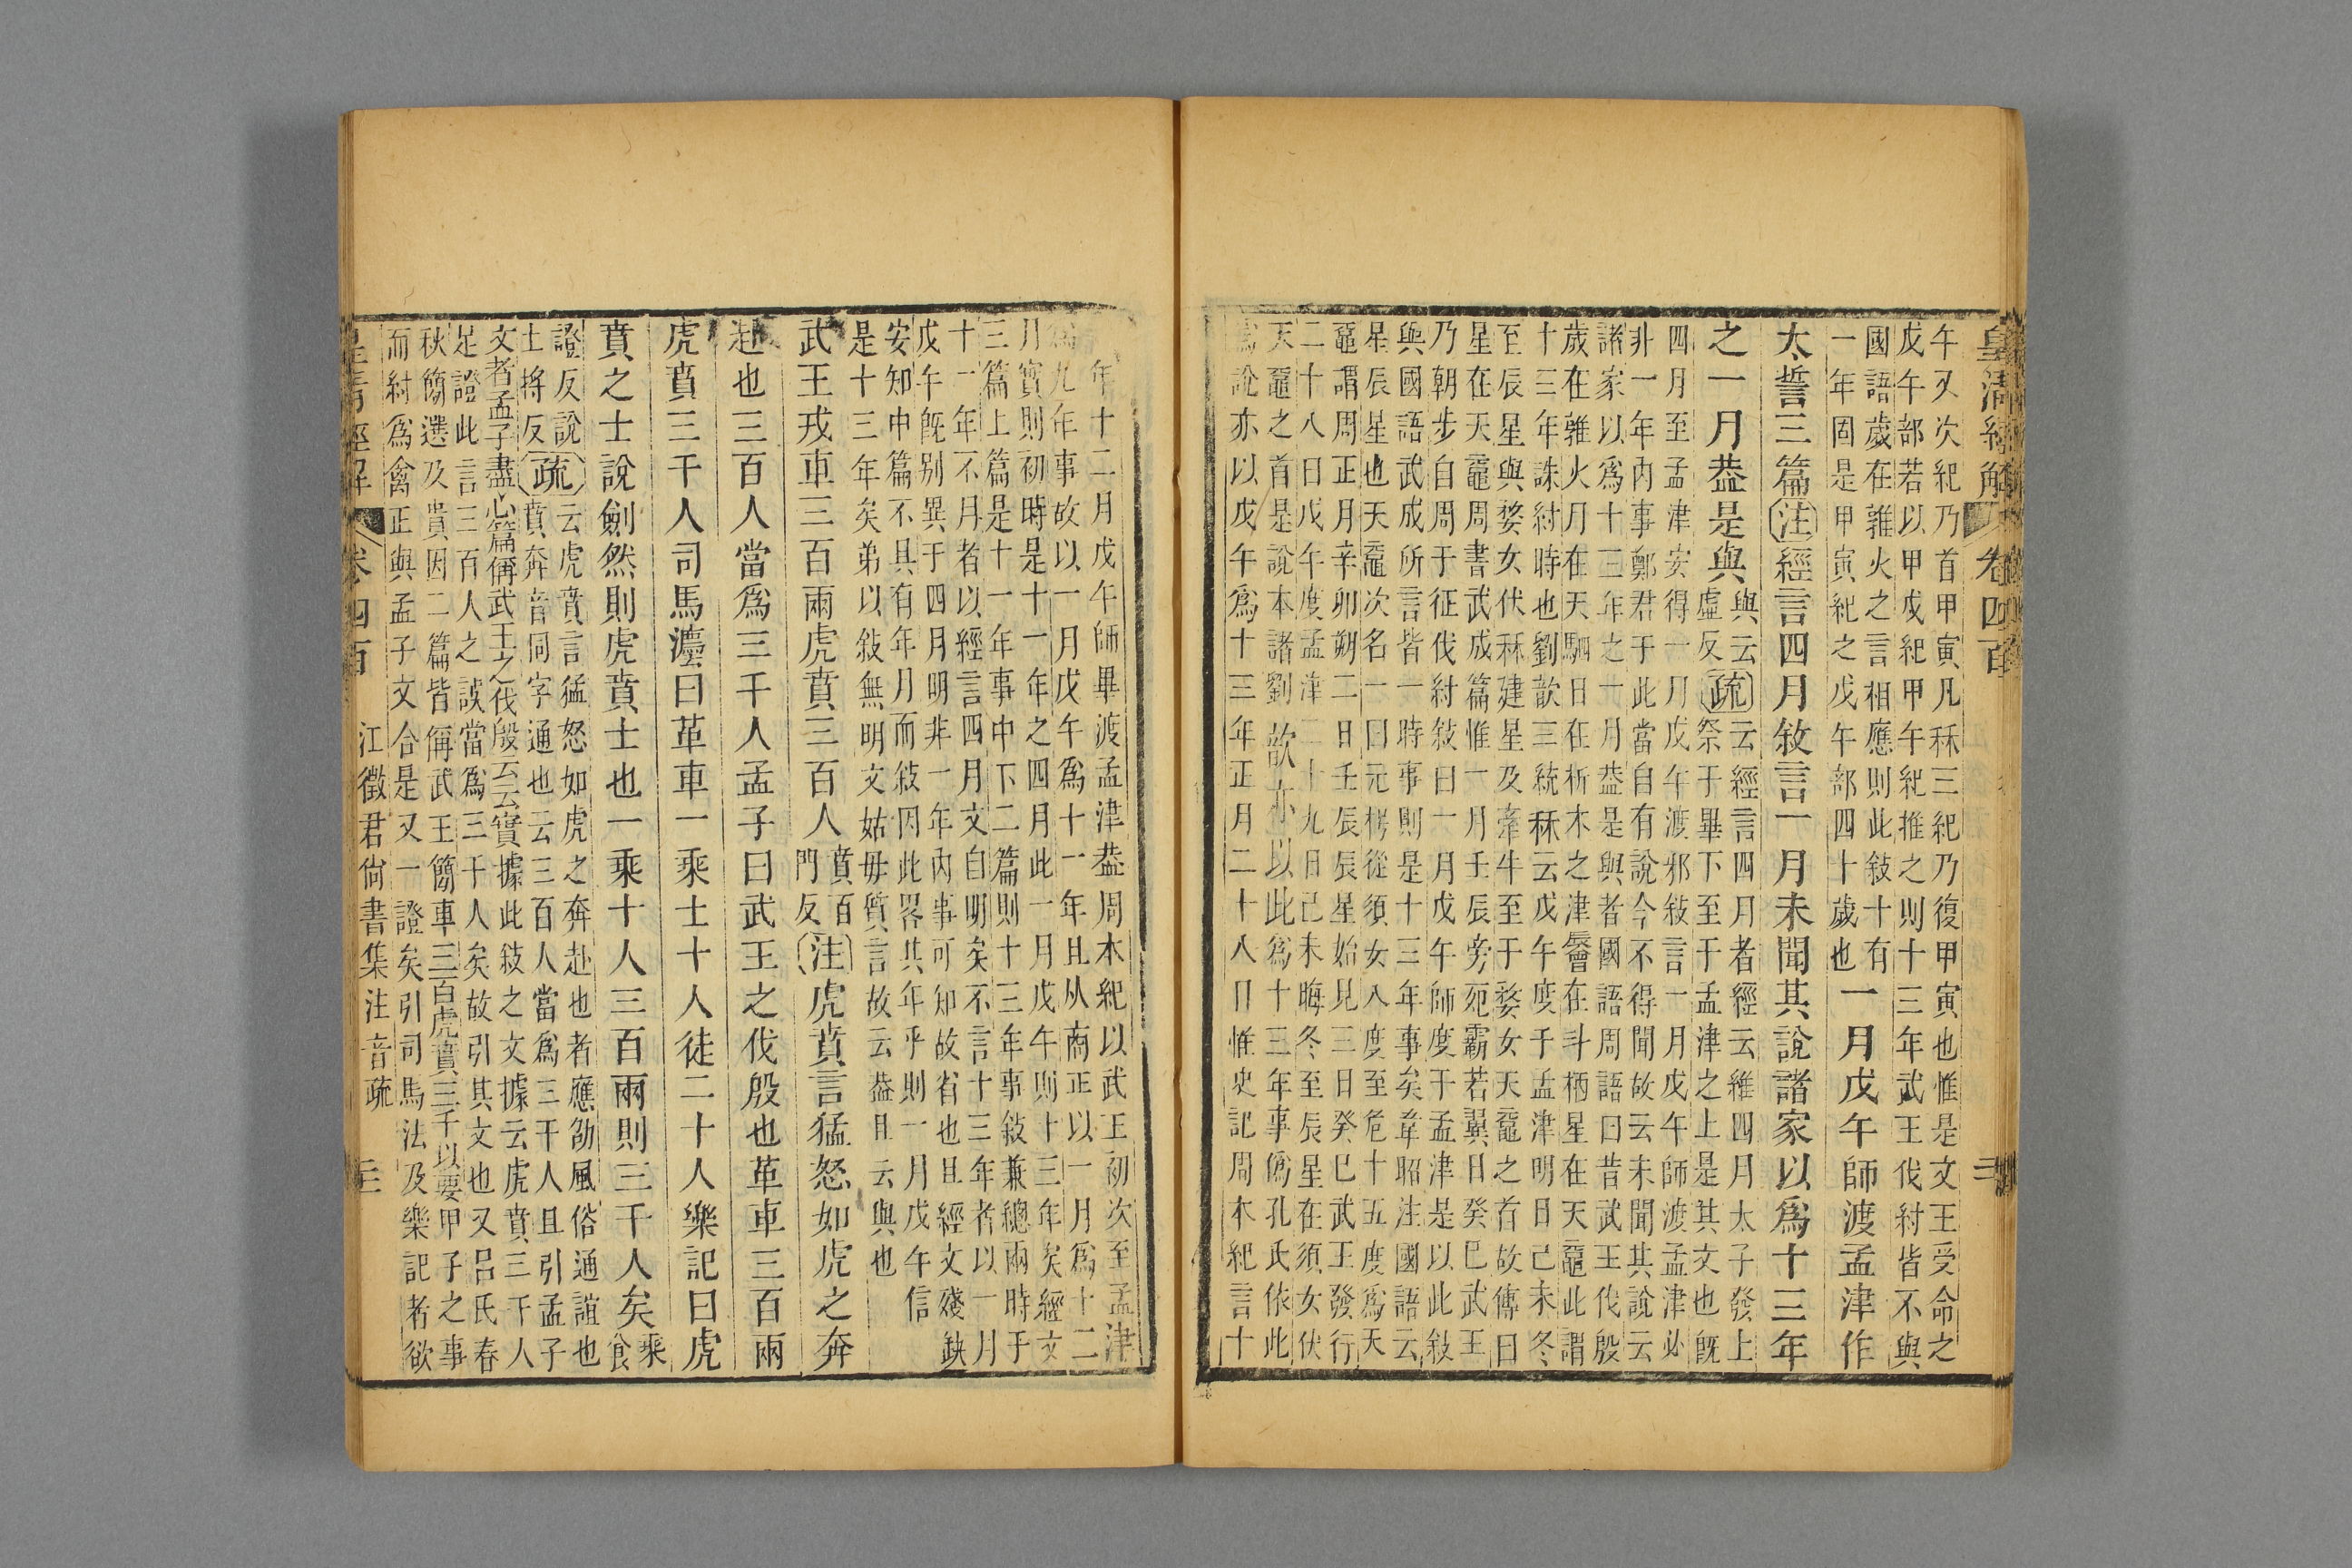 皇清經解 卷四百 三
午又次紀乃首甲寅凡秝三紀乃復甲寅也惟是文王受命之
戊午部若以甲戌紀甲午紀推之則十三年武王伐紂皆不與
國語歲在鶉火之言相應則此敍十有
一年固是甲寅紀之戊午部四十歲也
一月戊午師渡孟津作
太誓三篇注經言四月敘言一月未聞其說諸家以爲十三年
之一月葢是與
與云
虛反
疏
云經言四月者經云維四月太子發上
祭于畢下至于孟津之上是其文也旣
四月至孟津安得一月戊午渡邪敍言一月戊午師渡孟津必
非一年內事鄭君于此當自有說今不得聞故云未聞其說云
諸家以爲十三年之一月葢是與者國語周語曰昔武王伐殷
歲在鶉火月在天駟日在析木之津辰在斗柄星在天黿此謂
十三年誅紂時也劉歆三統秝云戊午度于孟津明日己未冬
至辰星與婺女伏秝建星及牽牛至于婺女天黿之首故傳曰
星在天黿周書武成篇惟一月壬辰旁死霸若翼日癸巳武王
乃朝步自周于征伐紂敍曰一月戊午師度于孟津是以此敍
與國語武成所言皆一時事則是十三年事矣韋昭注國語云
星辰星也天黿次名一曰元枵從須女八度至危十五度爲天
黿謂周正月辛卯朔二日壬辰辰星始見三日癸巳武王發行
二十八日戊午度孟津二十九日己未晦冬至辰星在須女伏
天黿之首是說本諸劉歆亦以此爲十三年事僞孔氏依此
爲說亦以戊午爲十三年正月二十八日惟史記周本紀言十
一年十二月戊午師畢渡孟津葢周本紀以武王初次至孟津
爲九年事故以一月戊午爲十一年且从商正以一月爲十二
月實則初時是十一年之四月此一月戊午則十三年矣經文
三篇上篇是十一年事中下二篇則十三年事敍兼總兩時于
十一年不月者以經言四月文自明矣不言十三年者以一月
戊午旣別異于四月明非一年內事可知故省也且經文殘缺
安知中篇不具有年月而敍因此畧其年乎則一月戊午信
是十三年矣弟以敍無明文姑毋質言故云葢且云與也
武王戎車三百兩虎賁三百人
賁百
門反
注虎賁言猛怒如虎之奔
赴也三百人當爲三千人孟子曰武王之伐殷也革車三百兩
虎賁三千人司馬灋曰革車一乘士十人徒二十人樂記曰虎
賁之士說劍然則虎賁士也一乘十人三百兩則三千人矣
乘
食
證反說
士將反
疏
云虎賁言猛怒如虎之奔赴也者應劭風俗通誼也
賁奔音同字通也云三百人當爲三千人且引孟子
文者孟子盡心篇偁武王之伐殷云云實據此敍之文據云虎賁三千人
足證此言三百人之誤當爲三千人矣故引其文也又呂氏春
秋簡選及貴因二篇皆偁武王簡車三百虎賁三千以要甲子之事
而紂爲禽正與孟子文合是又一證矣引司馬法及樂記者欲
皇清經解 卷四百 江徵君尙書集注音疏 三